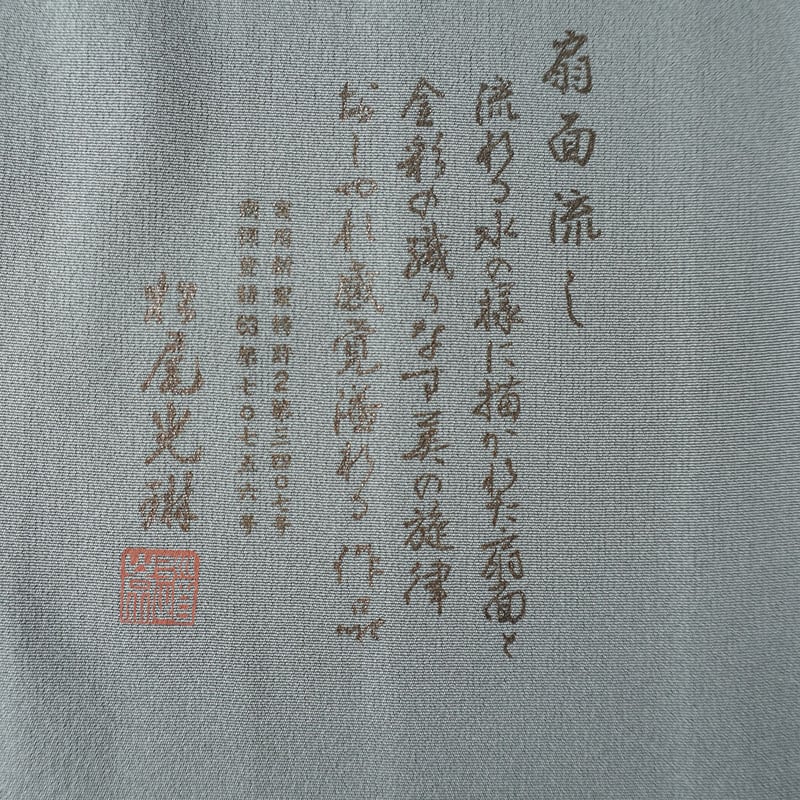 扇面流し
流れる水の様に描かれた扇面と
金彩の織りなす美の旋律
おしゃれ感覚溢れる作品
実用新案特許2第三四〇七号
意匠登録 第七〇七五六号
松尾光琳